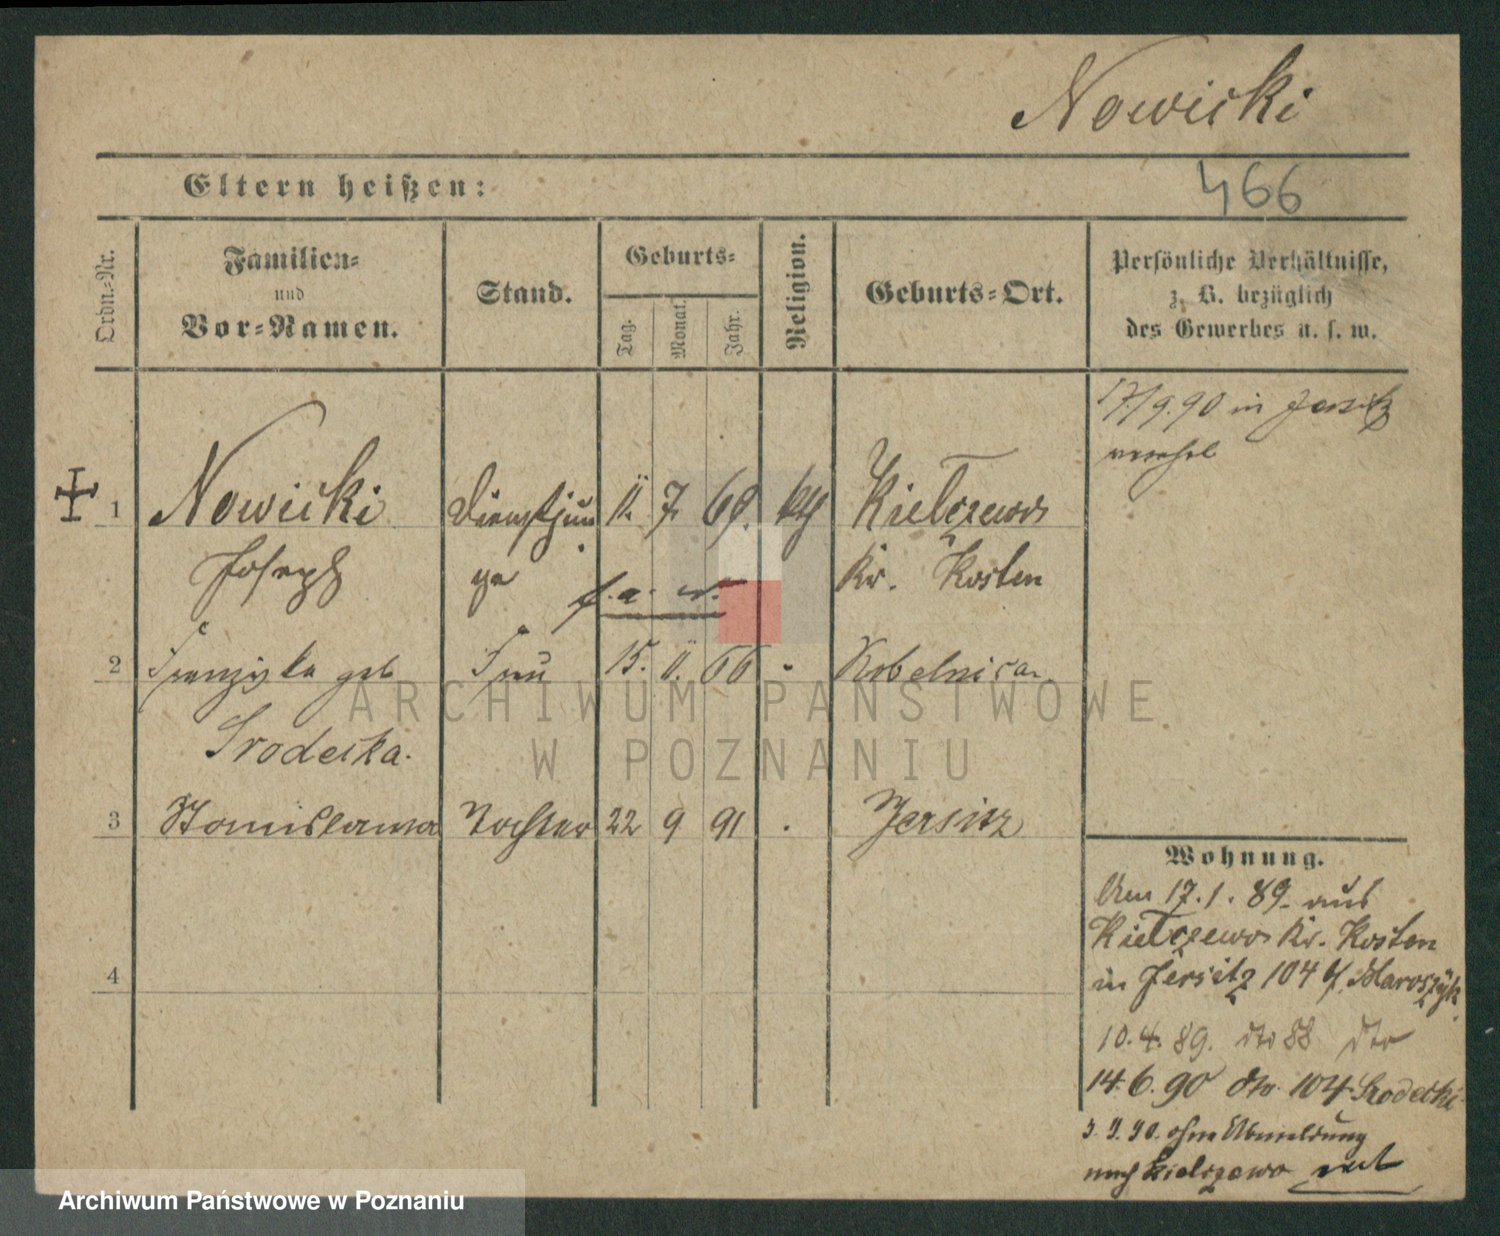 Nowicki
Eltern heißen:
466
Ordn.-Nr.
Familien-
und
Vor-Namen.
Stand.
Geburts-
Tag.
Monat.
Jahr.
Religion.
Geburts-Ort.
Persönliche Verhältnisse,
z. B. bezüglich
des Gewerbes u. s. w.
17./9.90 in Jersitz
verehel
1 Nowicki Dienstjun 11. 7. 69. kth Kielczewo
Joseph ge Kr. Kosten
f. a. w.
2 Franziska geb Frau 15. 11. 66 - Kobelnica
Srodecka.
3 Stanislawa Tochter 22 9 91 . Jersitz
4
Wohnung.
Am 17.1.89. aus
Kielczewo Kr. Kosten
in Jersitz 104 b/
10.4.89. dto 88 dto
14.6.90 dto. 104 Srodecki
3.9.90. ohne Abmeldung
nach Kielczewo
ARCHIWUM PAŃSTWOWE
W POZNANIU
Archiwum Państwowe w Poznaniu